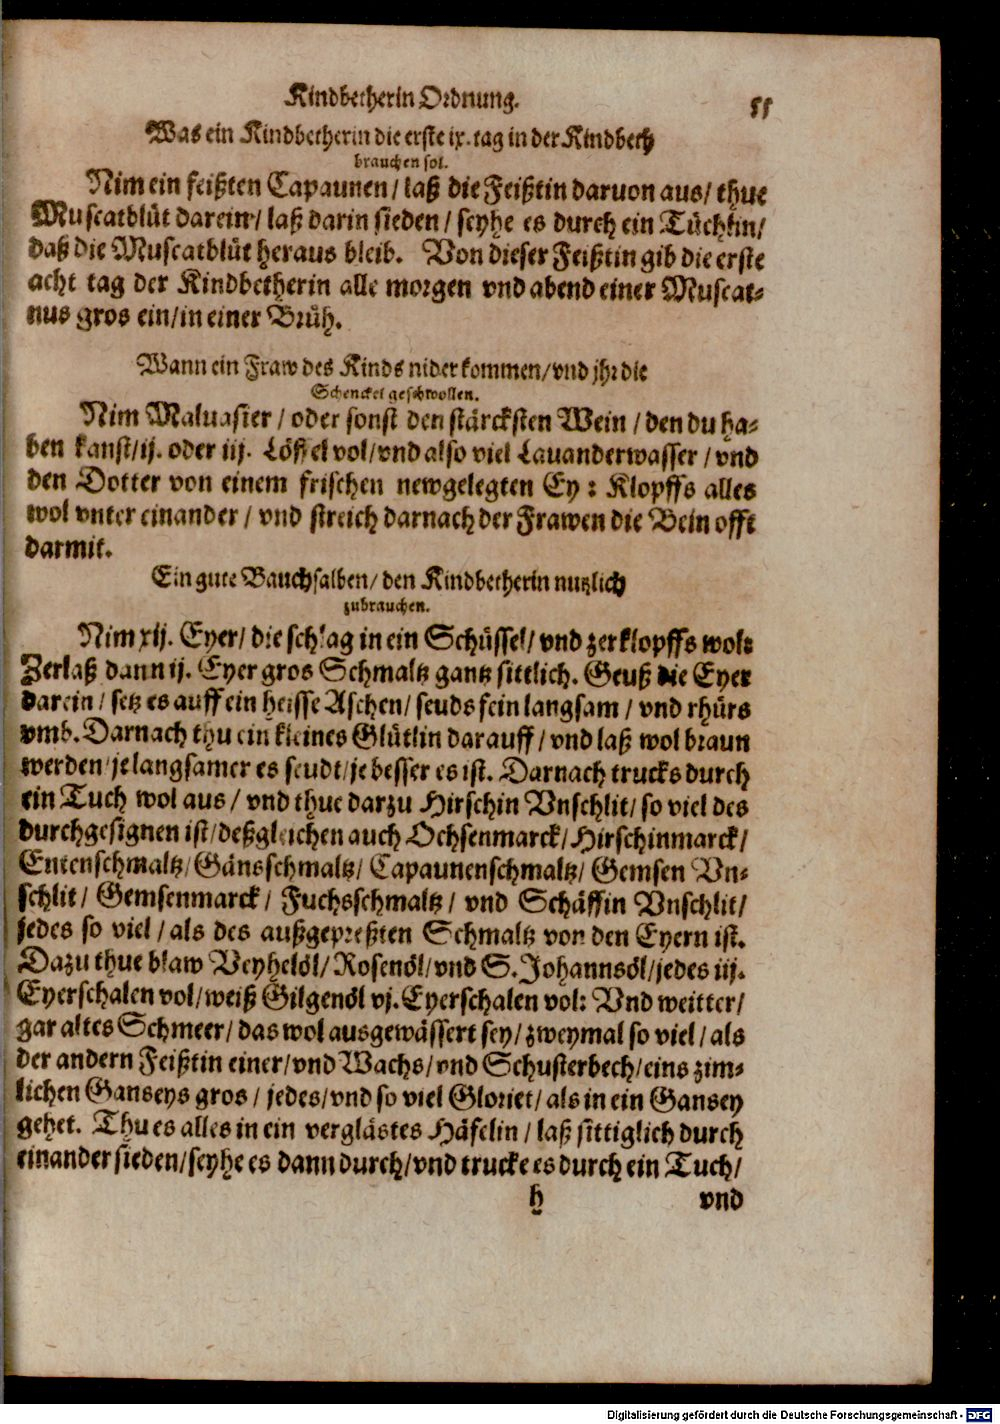 Kindbetherin Ordnung.
55
Was ein Kindbetherin die erste ix. tag in der Kindbeth
brauchen sol.
Nim ein feißten Capaunen / laß die Feißtin daruon aus / thue
Muscatblüt darein / laß darin sieden / seyhe es durch ein Tüchlin /
daß die Muscatblüt heraus bleib. Von dieser Feißtin gib die erste
acht tag der Kindbetherin alle morgen vnd abend einer Muscat-
nus gros ein / in einer Brüh.
Wann ein Fraw des Kinds nider kommen / vnd jhr die
Schenckel geschwollen.
Nim Maluasier / oder sonst den stärcksten Wein / den du ha-
ben kanst / ij. oder iij. Löffel vol / vnd also viel Lauanderwasser / vnd
den Dotter von einem frischen newgelegten Ey : Klopffs alles
wol vnter einander / vnd streich darnach der Frawen die Bein offt
darmit.
Ein gute Bauchsalben / den Kindbetherin nutzlich
zubrauchen.
Nim xij. Eyer / die schlag in ein Schüssel / vnd zerklopffs wol:
Zerlaß dann ij. Eyer gros Schmaltz gantz sittlich. Geuß die Eyer
darein / setz es auff ein heisse Aschen / seuds fein langsam / vnd rhürs
vmb. Darnach thu ein kleines Glütlin darauff / vnd laß wol braun
werden / je langsamer es seudt / je besser es ist. Darnach trucks durch
ein Tuch wol aus / vnd thue darzu Hirschin Vnschlit / so viel des
durchgesignen ist / deßgleichen auch Ochsenmarck / Hirschinmarck /
Entenschmaltz / Gänsschmaltz / Capaunenschmaltz / Gemsen Vn-
schlit / Gemsenmarck / Fuchsschmaltz / vnd Schäffin Vnschlit /
jedes so viel / als des außgepreßten Schmaltz von den Eyern ist.
Dazu thue blaw Veyhelöl / Rosenöl / vnd S. Johannsöl / jedes iij.
Eyerschalen vol / weiß Gilgenöl vj. Eyerschalen vol: Vnd weitter /
gar altes Schmeer / das wol ausgewässert sey / zweymal so viel / als
der andern Feißtin einer / vnd Wachs / vnd Schusterbech / eins zim-
lichen Ganseys gros / jedes / vnd so viel Gloriet / als in ein Gansey
gehet. Thu es alles in ein verglästes Häfelin / laß sittiglich durch
einander sieden / seyhe es dann durch / vnd trucke es durch ein Tuch /
h
vnd
Digitalisierung gefördert durch die Deutsche Forschungsgemeinschaft - DFG